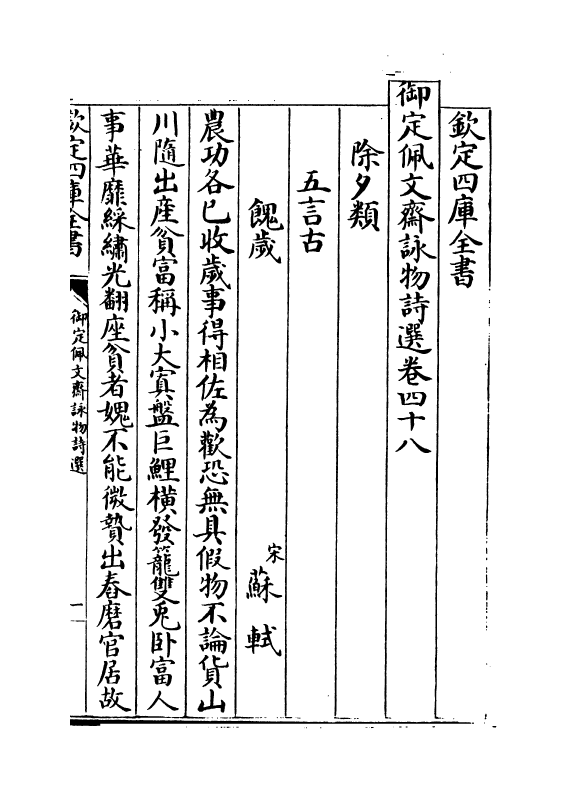 欽定四庫全書
御定佩文齋詠物詩選卷四十八
除夕類
五言古
餽歲
宋蘇軾
農功各已收歲事得相佐為歡恐無具假物不論貨山
川隨出産貧富稱小大寘盤巨鯉橫發籠雙兎卧富人
事華靡綵繡光翻座貧者媿不能微贄出舂磨官居故
欽定四庫全書
御定佩文齋詠物詩選
一